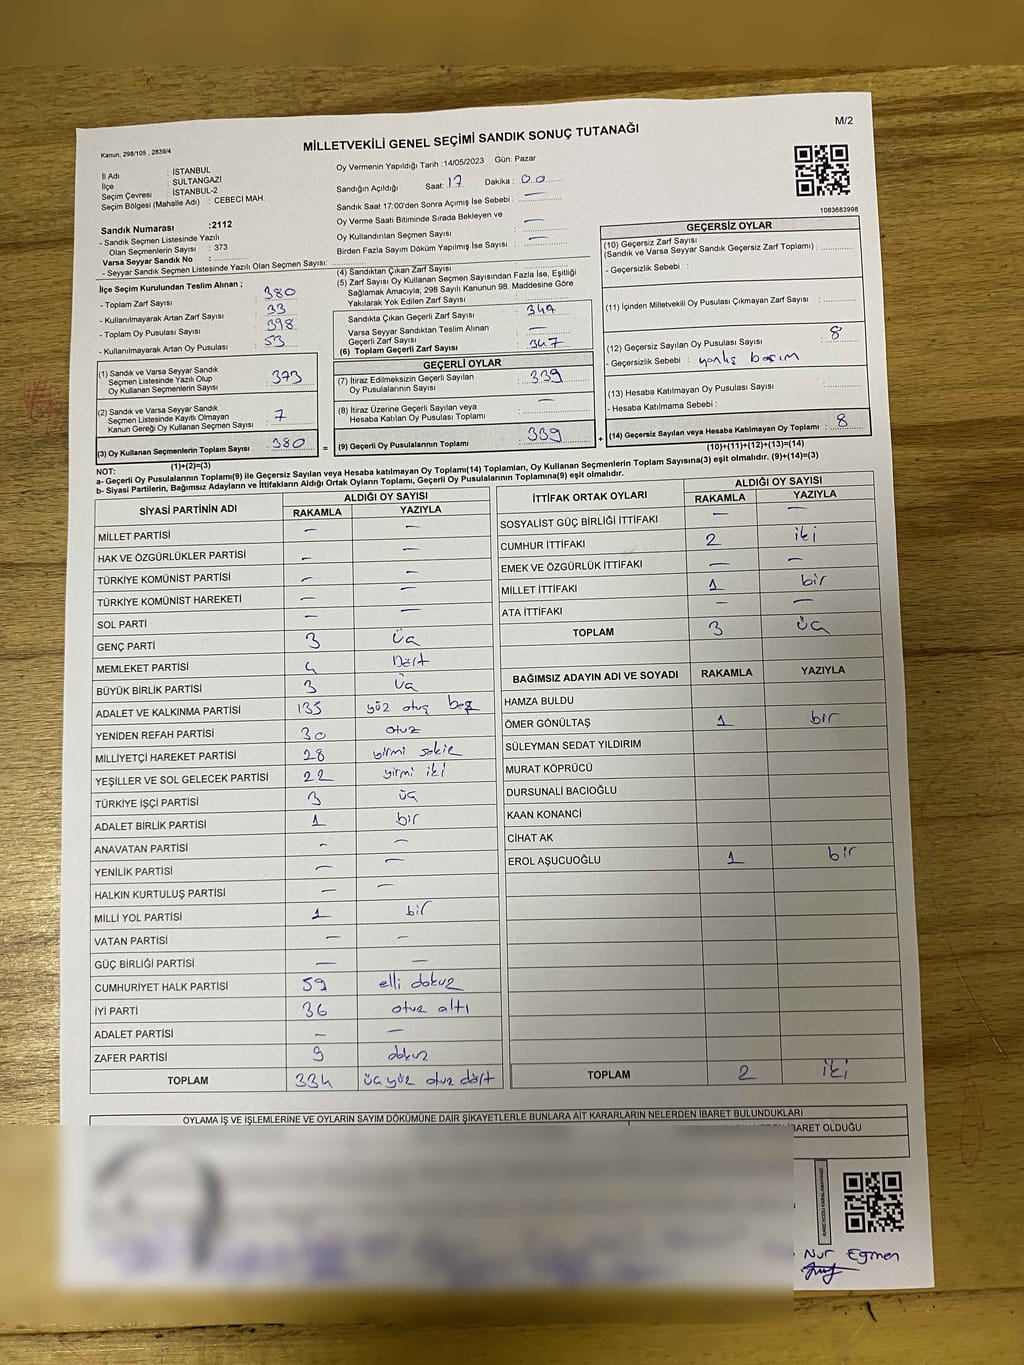 MİLLETVEKİLİ GENEL SEÇİMİ SANDIK SONUÇ TUTANAĞI
M/2
Kanun, 298/105 , 2839/4
İl Adı : İSTANBUL
İlçe : SULTANGAZİ
Seçim Çevresi : İSTANBUL-2
Seçim Bölgesi (Mahalle Adı) : CEBECİ MAH.
Oy Vermenin Yapıldığı Tarih : 14/05/2023 Gün: Pazar
Sandığın Açıldığı Saat: 17 Dakika : 00
Sandık Saat 17:00'den Sonra Açımış İse Sebebi : —
Oy Verme Saati Bitiminde Sırada Bekleyen ve
Oy Kullandırılan Seçmen Sayısı : —
Birden Fazla Sayım Döküm Yapılmış İse Sayısı : —
1083683998
Sandık Numarası :2112
- Sandık Seçmen Listesinde Yazılı
Olan Seçmenlerin Sayısı : 373
Varsa Seyyar Sandık No :
- Seyyar Sandık Seçmen Listesinde Yazılı Olan Seçmen Sayısı:
İlçe Seçim Kurulundan Teslim Alınan ;
- Toplam Zarf Sayısı : 380
- Kullanılmayarak Artan Zarf Sayısı : 33
- Toplam Oy Pusulası Sayısı : 398
- Kullanılmayarak Artan Oy Pusulası : 53
(1) Sandık ve Varsa Seyyar Sandık
Seçmen Listesinde Yazılı Olup
Oy Kullanan Seçmenlerin Sayısı : 373
(2) Sandık ve Varsa Seyyar Sandık
Seçmen Listesinde Kayıtlı Olmayan
Kanun Gereği Oy Kullanan Seçmen Sayısı : 7
(3) Oy Kullanan Seçmenlerin Toplam Sayısı : 380
(1)+(2)=(3)
(4) Sandıktan Çıkan Zarf Sayısı :
(5) Zarf Sayısı Oy Kullanan Seçmen Sayısından Fazla İse, Eşitliği
Sağlamak Amacıyla; 298 Sayılı Kanunun 98. Maddesine Göre
Yakılarak Yok Edilen Zarf Sayısı :
Sandıkta Çıkan Geçerli Zarf Sayısı : 347
Varsa Seyyar Sandıktan Teslim Alınan
Geçerli Zarf Sayısı : —
(6) Toplam Geçerli Zarf Sayısı : 347
GEÇERLİ OYLAR
(7) İtiraz Edilmeksizin Geçerli Sayılan
Oy Pusulalarının Sayısı : 339
(8) İtiraz Üzerine Geçerli Sayılan veya
Hesaba Katılan Oy Pusulası Toplamı : —
= (9) Geçerli Oy Pusulalarının Toplamı : 339
GEÇERSİZ OYLAR
(10) Geçersiz Zarf Sayısı
(Sandık ve Varsa Seyyar Sandık Geçersiz Zarf Toplamı) :
- Geçersiz Sebebi :
(11) İçinden Milletvekili Oy Pusulası Çıkmayan Zarf Sayısı :
(12) Geçersiz Sayılan Oy Pusulası Sayısı : 8
- Geçersizlik Sebebi : yanlış basım
(13) Hesaba Katılmayan Oy Pusulası Sayısı :
- Hesaba Katılmama Sebebi :
+ (14) Geçersiz Sayılan veya Hesaba Katılmayan Oy Toplamı : 8
(10)+(11)+(12)+(13)=(14)
NOT:
a- Geçerli Oy Pusulalarının Toplamı(9) ile Geçersiz Sayılan veya Hesaba katılmayan Oy Toplamı(14) Toplamları, Oy Kullanan Seçmenlerin Toplam Sayısına(3) eşit olmalıdır. (9)+(14)=(3)
b- Siyasi Partilerin, Bağımsız Adayların ve İttifakların Aldığı Ortak Oyların Toplamı, Geçerli Oy Pusulalarının Toplamına(9) eşit olmalıdır.
SİYASİ PARTİNİN ADI
ALDIĞI OY SAYISI
RAKAMLA YAZIYLA
MİLLET PARTİSİ — —
HAK VE ÖZGÜRLÜKLER PARTİSİ — —
TÜRKİYE KOMÜNİST PARTİSİ — —
TÜRKİYE KOMÜNİST HAREKETİ — —
SOL PARTİ — —
GENÇ PARTİ 3 üç
MEMLEKET PARTİSİ 4 Dört
BÜYÜK BİRLİK PARTİSİ 3 üç
ADALET VE KALKINMA PARTİSİ 135 yüz otuz beş
YENİDEN REFAH PARTİSİ 30 otuz
MİLLİYETÇİ HAREKET PARTİSİ 28 yirmi sekiz
YEŞİLLER VE SOL GELECEK PARTİSİ 22 yirmi iki
TÜRKİYE İŞÇİ PARTİSİ 3 üç
ADALET BİRLİK PARTİSİ 1 bir
ANAVATAN PARTİSİ - —
YENİLİK PARTİSİ — —
HALKIN KURTULUŞ PARTİSİ — —
MİLLİ YOL PARTİSİ 1 bir
VATAN PARTİSİ — —
GÜÇ BİRLİĞİ PARTİSİ — —
CUMHURİYET HALK PARTİSİ 59 elli dokuz
İYİ PARTİ 36 otuz altı
ADALET PARTİSİ — —
ZAFER PARTİSİ 9 dokuz
TOPLAM 334 üç yüz otuz dört
İTTİFAK ORTAK OYLARI
ALDIĞI OY SAYISI
RAKAMLA YAZIYLA
SOSYALİST GÜÇ BİRLİĞİ İTTİFAKI — —
CUMHUR İTTİFAKI 2 iki
EMEK VE ÖZGÜRLÜK İTTİFAKI — —
MİLLET İTTİFAKI 1 bir
ATA İTTİFAKI — —
TOPLAM 3 üç
BAĞIMSIZ ADAYIN ADI VE SOYADI RAKAMLA YAZIYLA
HAMZA BULDU
ÖMER GÖNÜLTAŞ 1 bir
SÜLEYMAN SEDAT YILDIRIM
MURAT KÖPRÜCÜ
DURSUNALİ BACIOĞLU
KAAN KONANCİ
CİHAT AK
EROL AŞUCUOĞLU 1 bir
TOPLAM 2 iki
OYLAMA İŞ VE İŞLEMLERİNE VE OYLARIN SAYIM DÖKÜMÜNE DAİR ŞİKAYETLERLE BUNLARA AİT KARARLARIN NELERDEN İBARET BULUNDUKLARI
İBARET OLDUĞU
Nur Egmen